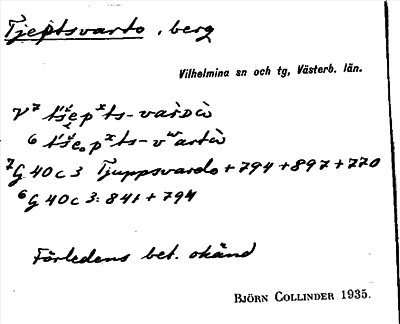 Tjeptsvarto, berg
Vilhelmina sn och tg, Västerb. län.
⁶
⁷G 40 c 3 Tjuppsvardo + 794 + 897 + 770
⁶G 40 c 3: 841 + 794
Förledens bet. okänd
BJÖRN COLLINDER 1935.